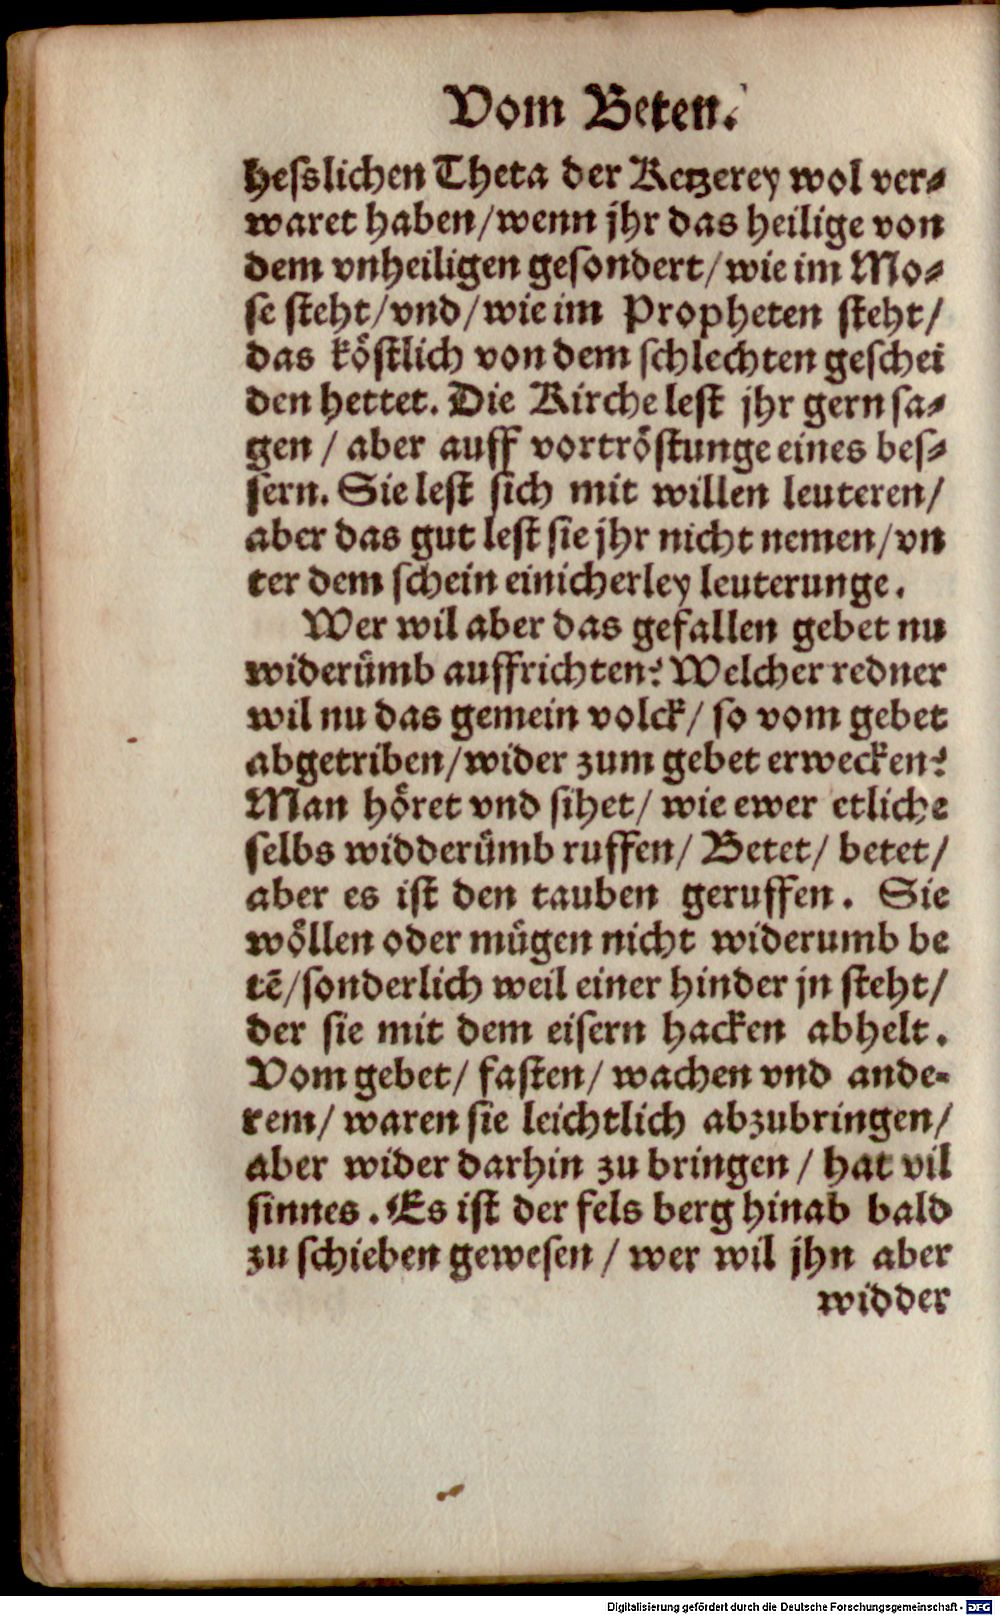 Vom Beten.
hesslichen Theta der Ketzerey wol ver⸗
waret haben/wenn jhr das heilige von
dem vnheiligen gesondert/wie im Mo⸗
se steht/vnd/wie im Propheten steht/
das köstlich von dem schlechten geschei
den hettet. Die Kirche lest jhr gern sa⸗
gen / aber auff vortröstunge eines bes⸗
sern. Sie lest sich mit willen leuteren/
aber das gut lest sie jhr nicht nemen/vn
ter dem schein einicherley leuterunge.
Wer wil aber das gefallen gebet nu
widerümb auffrichten? Welcher redner
wil nu das gemein volck/ so vom gebet
abgetriben/wider zum gebet erwecken?
Man höret vnd sihet/ wie ewer etliche
selbs widderümb ruffen/ Betet/ betet/
aber es ist den tauben geruffen. Sie
wöllen oder mügen nicht widerumb be
tē/sonderlich weil einer hinder jn steht/
der sie mit dem eisern hacken abhelt.
Vom gebet/ fasten/ wachen vnd ande⸗
rem/ waren sie leichtlich abzubringen/
aber wider darhin zu bringen / hat vil
sinnes. Es ist der fels berg hinab bald
zu schieben gewesen / wer wil jhn aber
widder
Digitalisierung gefördert durch die Deutsche Forschungsgemeinschaft - DFG